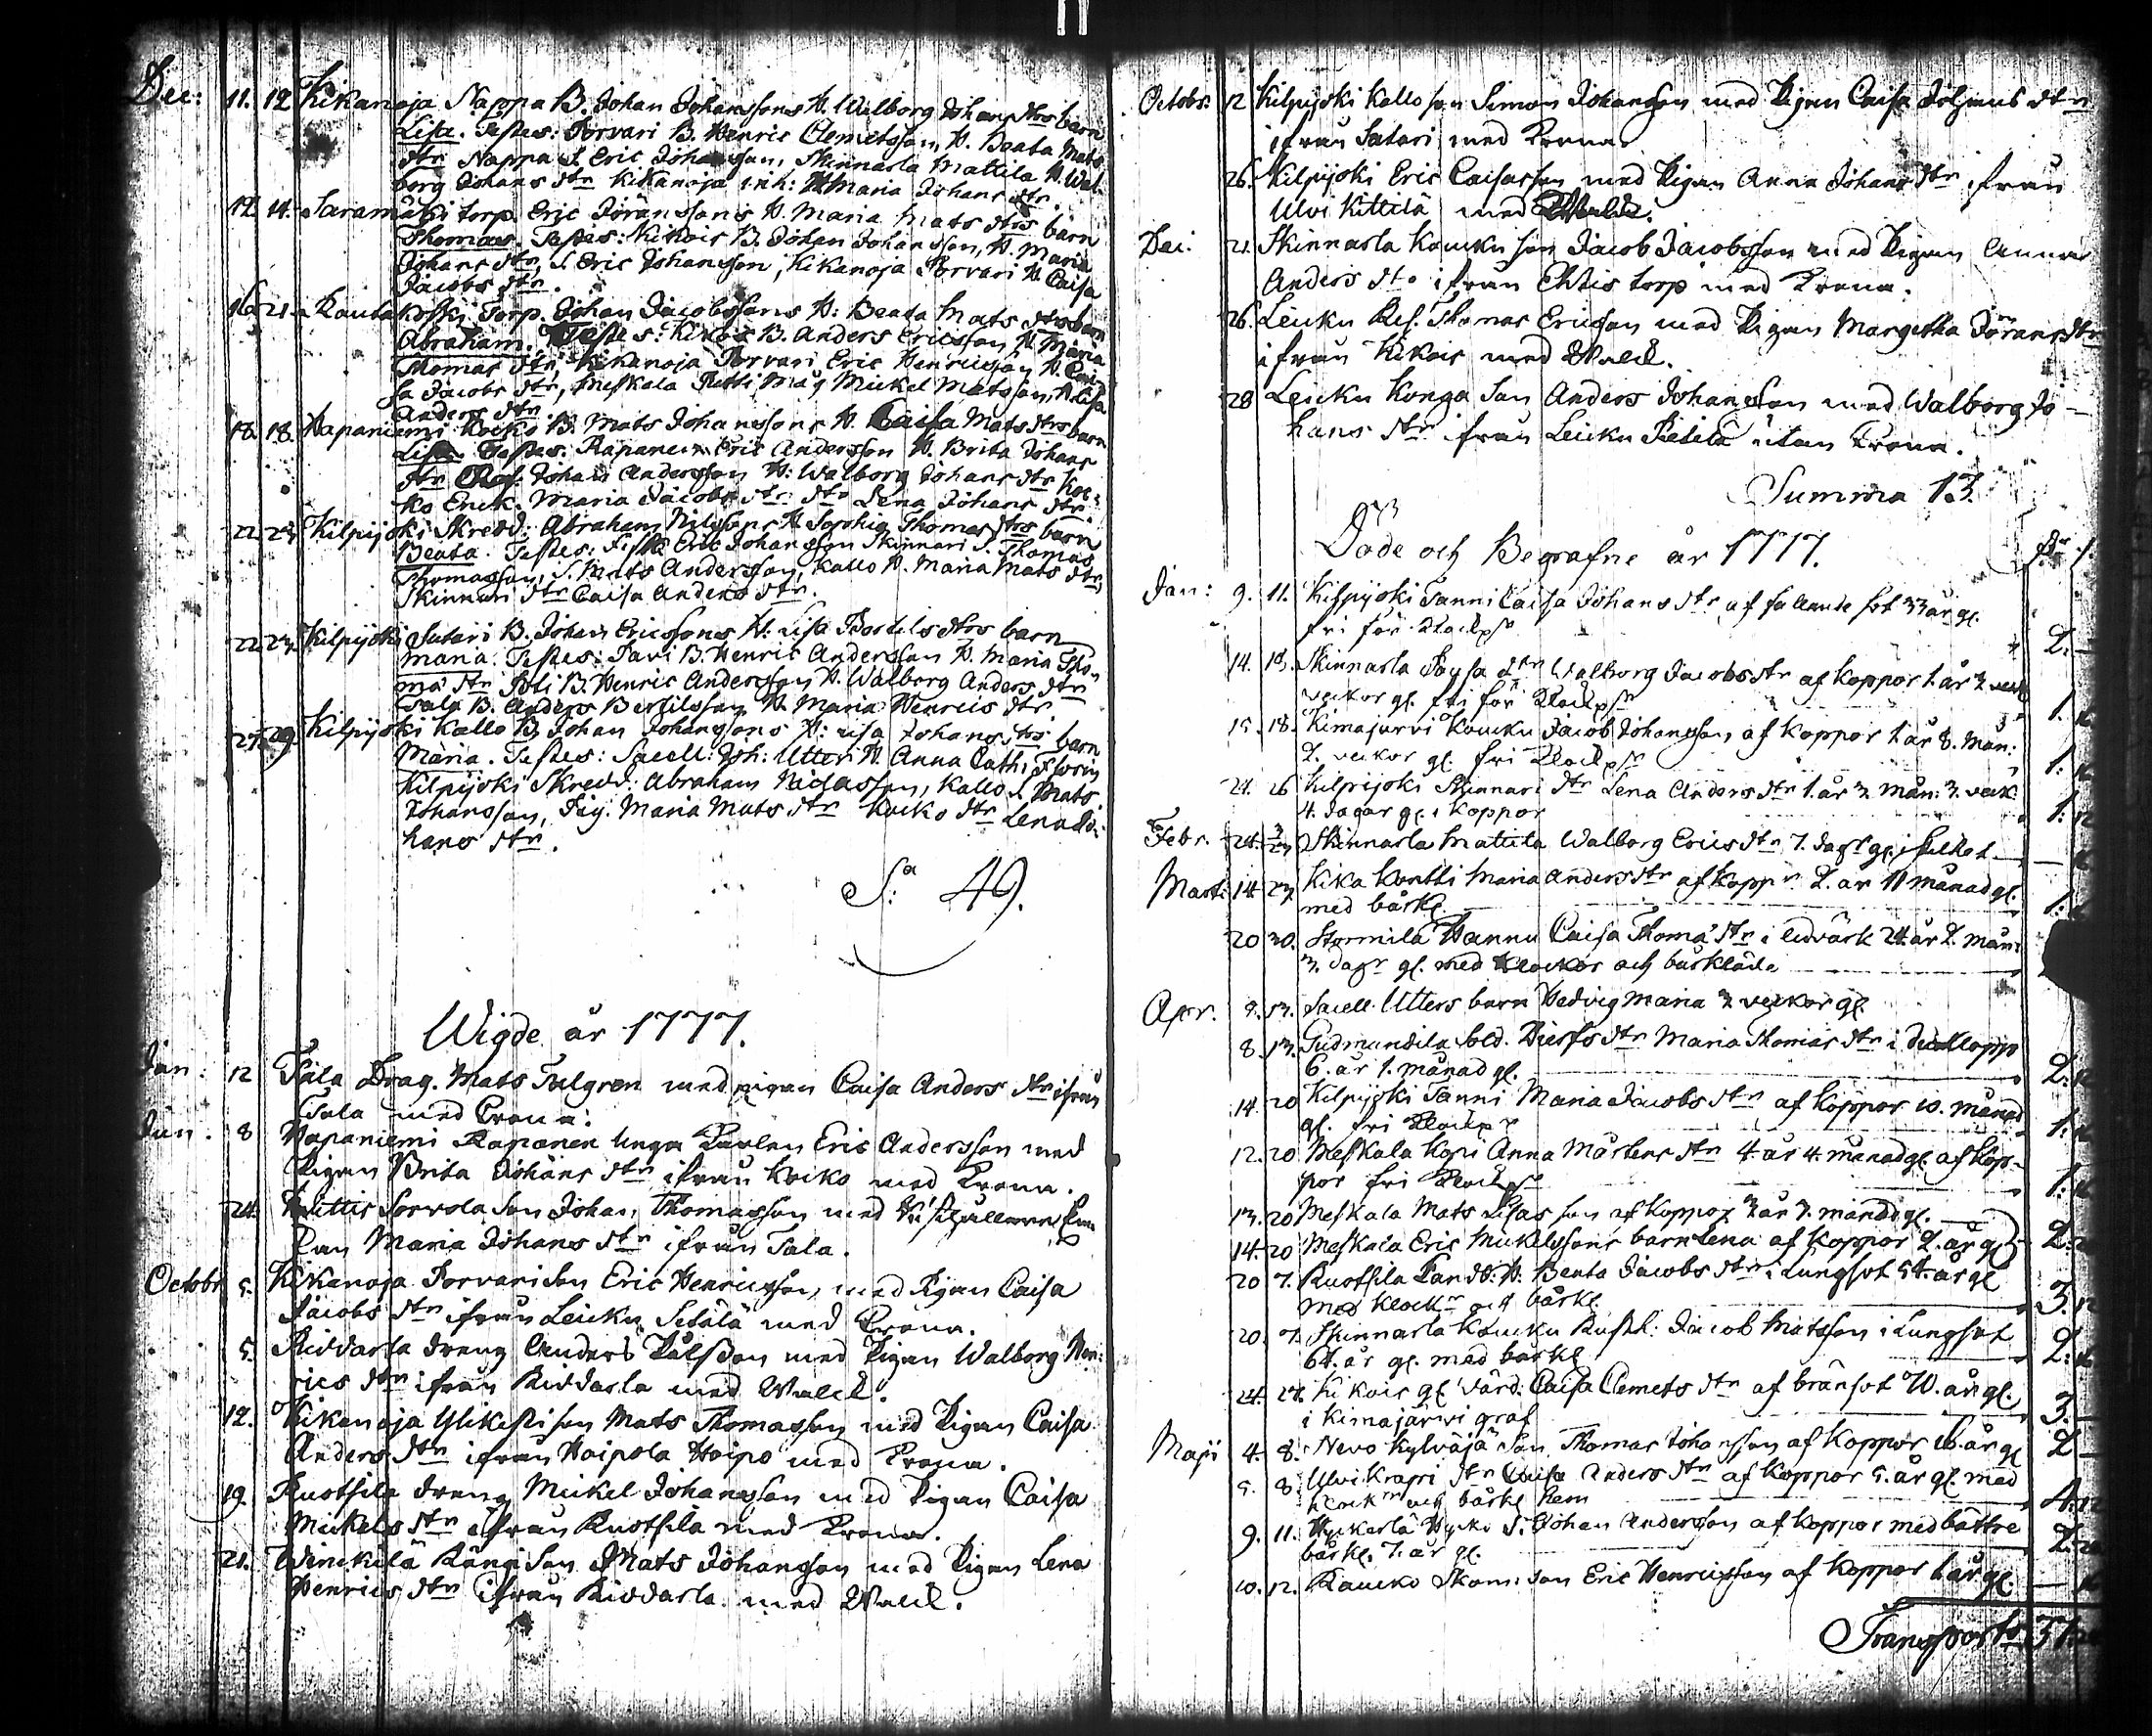 Dec: 11. 12 Kikanoja Nappa B. Johan Johanssons H. Walborg Johans dtrs barn
Lisa. Testes: Torvari B. Henric Clemetsson, H. Beata Mats
dtr Nappa S. Eric Johansson, Skinnarla Mattila H. Wal-
borg Johans dtr Kikanoja inh: H Maria Johans dtr.
12. 14. Saramäki torp. Eric Jöranssons H. Maria Mats dtrs barn
Thomas. Testes: Kikois B. Johan Johansson, H. Maria
Johans dtr, S. Eric Johansson, Kikanoja Torvari H. Caisa
Jacobs dtr.
16. 21. Rautakoski Torp. Johan Jacobssons H. Beata Mats dtrs barn
Abraham. Testes: Kikois B. Anders Ericsson H. Maria
Thomas dtr, Kikanoja Torvari Eric Henricsson H. Cai-
sa Jacobs dtr, Meskala Pietti Måg Mickel Matsson, H. Lisa
Anders dtr.
18. 18. Hapaniemi Kocko B. Mats Johanssons H. Caisa Mats dtrs barn
Lisa. Testes: Rapanen Eric Andersson H. Brita Johans
dtr Johan Andersson H: Walborg Johans dtr Koc-
ko Enk. Maria Jacobs dtr dtr Lena Johans dtr.
22. 23. Kilpijoki Skredd: Abraham Nilssons H Sophia Thomas dtrs barn
Beata. Testes: Eric Johansson Skinnari S. Thomas
Thomasson, S. Mats Andersson, Kallo H. Maria Mats dtr,
Skinnari dtr Caisa Anders dtr.
22. 23. Kilpijoki Sutari B. Johan Ericssons H: Lisa Bertils dtrs barn
Maria. Testes: Tavi B. Henric Andersson H. Maria Tho-
mæ dtr B. Henric Andersson H. Walborg Anders dtr
Tala B. Anders Bertilsson H. Maria Henrics dtr.
27. 29. Kilpijoki Kallo B. Johan Johanssons H: Lisa Johans dtrs barn
Maria. Testes: Sacell: Joh: Utter H. Anna Cath: Florin
Kilpijoki Skredd: Abraham Niclasson, Kallo S. Mats
Johansson, Pig. Maria Mats dtr Kocko dtr Lena Jo-
hans dtr.
S:a 49.
Wigde år 1777.
Jan: 12 Tala Drag. Mats Talgren med pigan Caisa Anders dtr ifrån
Tala med Crona.
Jun. 8 Hapaniemi Rapanen Unga Karlen Eric Andersson med
Pigan Brita Johans dtr ifrån Kocko med Krona.
24. Sorvola Son Johan Thomasson med
Maria Johans dtr ifrån Tala.
Octobr. 5. Kikanoja Torvari Son Eric Henricsson med Pigan Caisa
Jacobs dtr ifrån Leicku Setälä med Crona.
5. Riddarla dreng Anders Pålsson med Pigan Walborg Hen-
rics dtr ifrån Riddarla med Walck.
12. Kikanoja Ylikesti son Mats Thomasson med Pigan Caisa
Anders dtr ifrån Haipola Haipo med Krona.
19. Ruotsila dreng Mickel Johansson med Pigan Caisa
Mickels dtr ifrån Ruotsila med Krona.
21. Winckilä Räng Son Mats Johansson med Pigan Lena
Henrics dtr ifrån Riddarla med Walck.
Octobr: 12 Kilpijoki Kallo son Simon Johansson med Pigan Caisa dtr
ifrån Sutari med Krona.
26. Kilpijoki Eric Caisasson med Pigan Anna Johans dtr ifrån
Ulvi Kittilä med Walck.
Dec: 21. Skinnarla Koucku son Jacob Jacobsson med Pigan Anna
Anders dtr ifrån torp med Krona.
26. Leicku Res. Thomas Ericsson med Pigan Margetha Jörans dtr
ifrån Kikois med Walck.
28 Leicku Konga Son Anders Johansson med Walborg Jo-
hans dtr ifrån Leicku Pietilä utan Krona.
Summa 13.
Döde och Begrafne år 1777.
Jan: 9. 11. Kilpijoki Tanni Caisa Johans dtr af fallande sot 33 år gl.
fri för Klockpr 2. —
14. 19. Skinnarla dtr Walborg Jacobs dtr af koppor 1. år 3. veck
veckor gl. fri för Klockpr 1.
15. 18. Kimajärvi Koucku Jacob Johansson af koppor 1. år 8. mån:
2. veckor gl. fri Klockpr 1:
24. 26 Kilpijoki Skinnari dtr Lena Anders dtr 1. år 3. mån: 3. veck.
4. dagar gl. i koppor 1:
Febr. 24. Skinnarla Mattila Walborg Erics dtr 7. dagr gl. —
Marti 14 23 Kika Kontti Maria Anders dtr af koppr 2. år 11 månad gl.
med bårkl. 1:
20 30. Stormila Hannu Caisa Thomæ dtr i ledvärk 24. år 2. mån:
3. dagr gl. med klockor och bårkläde
Apr. 8. 13. Sacell. Utters barn Hedvig Maria 3 veckor gl.
8. 13. Gudmundila Sold. dtr Maria Thomas dtr i
6. år 1. månad gl. 2:
14. 20 Kilpijoki Tanni Maria Jacobs dtr af koppor 10. månad
gl. fri Klockpr 1:
12. 20 Meskala Kopi Anna Mårtens dtr 4. år 4. månad gl. af kop-
por fri Klockpr 1:
13. 20 Meskala Mats Lisas son af koppor 3 år 7. månad gl.
14. 20 Meskala Eric Mickelssons barn Lena af koppor 2. år gl. 2:
20 7. Ruotsila H. Beata Jacobs dtr i Lungsot 54. år gl
med klockr och bårkl. 3.
20. 7. Skinnarla Koucku Rusth: Jacob Matsson i Lungsot
64. år gl. med bårkl 2:
24. 27. Kikois gl. värd: Caisa Clemets dtr af bränsot 70. år gl.
i kimajärvi graf 3. —
Maji 4. 8. Nevo Kylväjä Son Thomas Johansson af koppor 10. år gl 2 —
5. 8 Ulvi Krapi dtr Caisa Anders dtr af koppor 5. år gl. med
klockr och bårkl hem 4.
9. 11. Hyckerlä Hycki S. Johan Andersson af koppor med bättre
bårkl. 7. år gl. 2.
10. 12. Raucko Skom: son Eric Henricsson af koppor 1. år gl. —
Transport 37